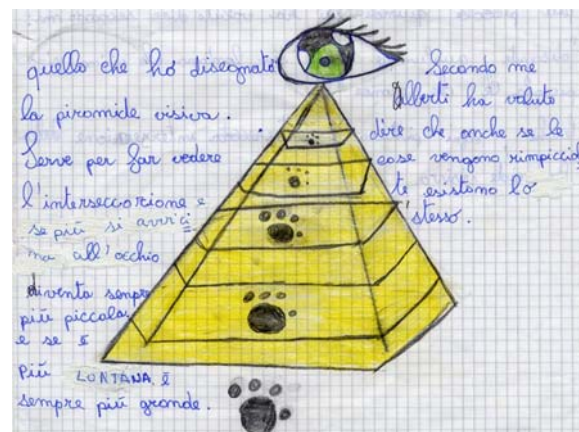 quello che ho disegnato
la piramide visiva.
Serve per far vedere
l'intersecciorione e
se più si avvici=
na all'occhio
diventa sempre
più piccola
e se è
più LONTANA È
sempre più grande.
Secondo me
Alberti ha voluto
dire che anche se le
cose vengono rimpicciol
te esistono lo
stesso.